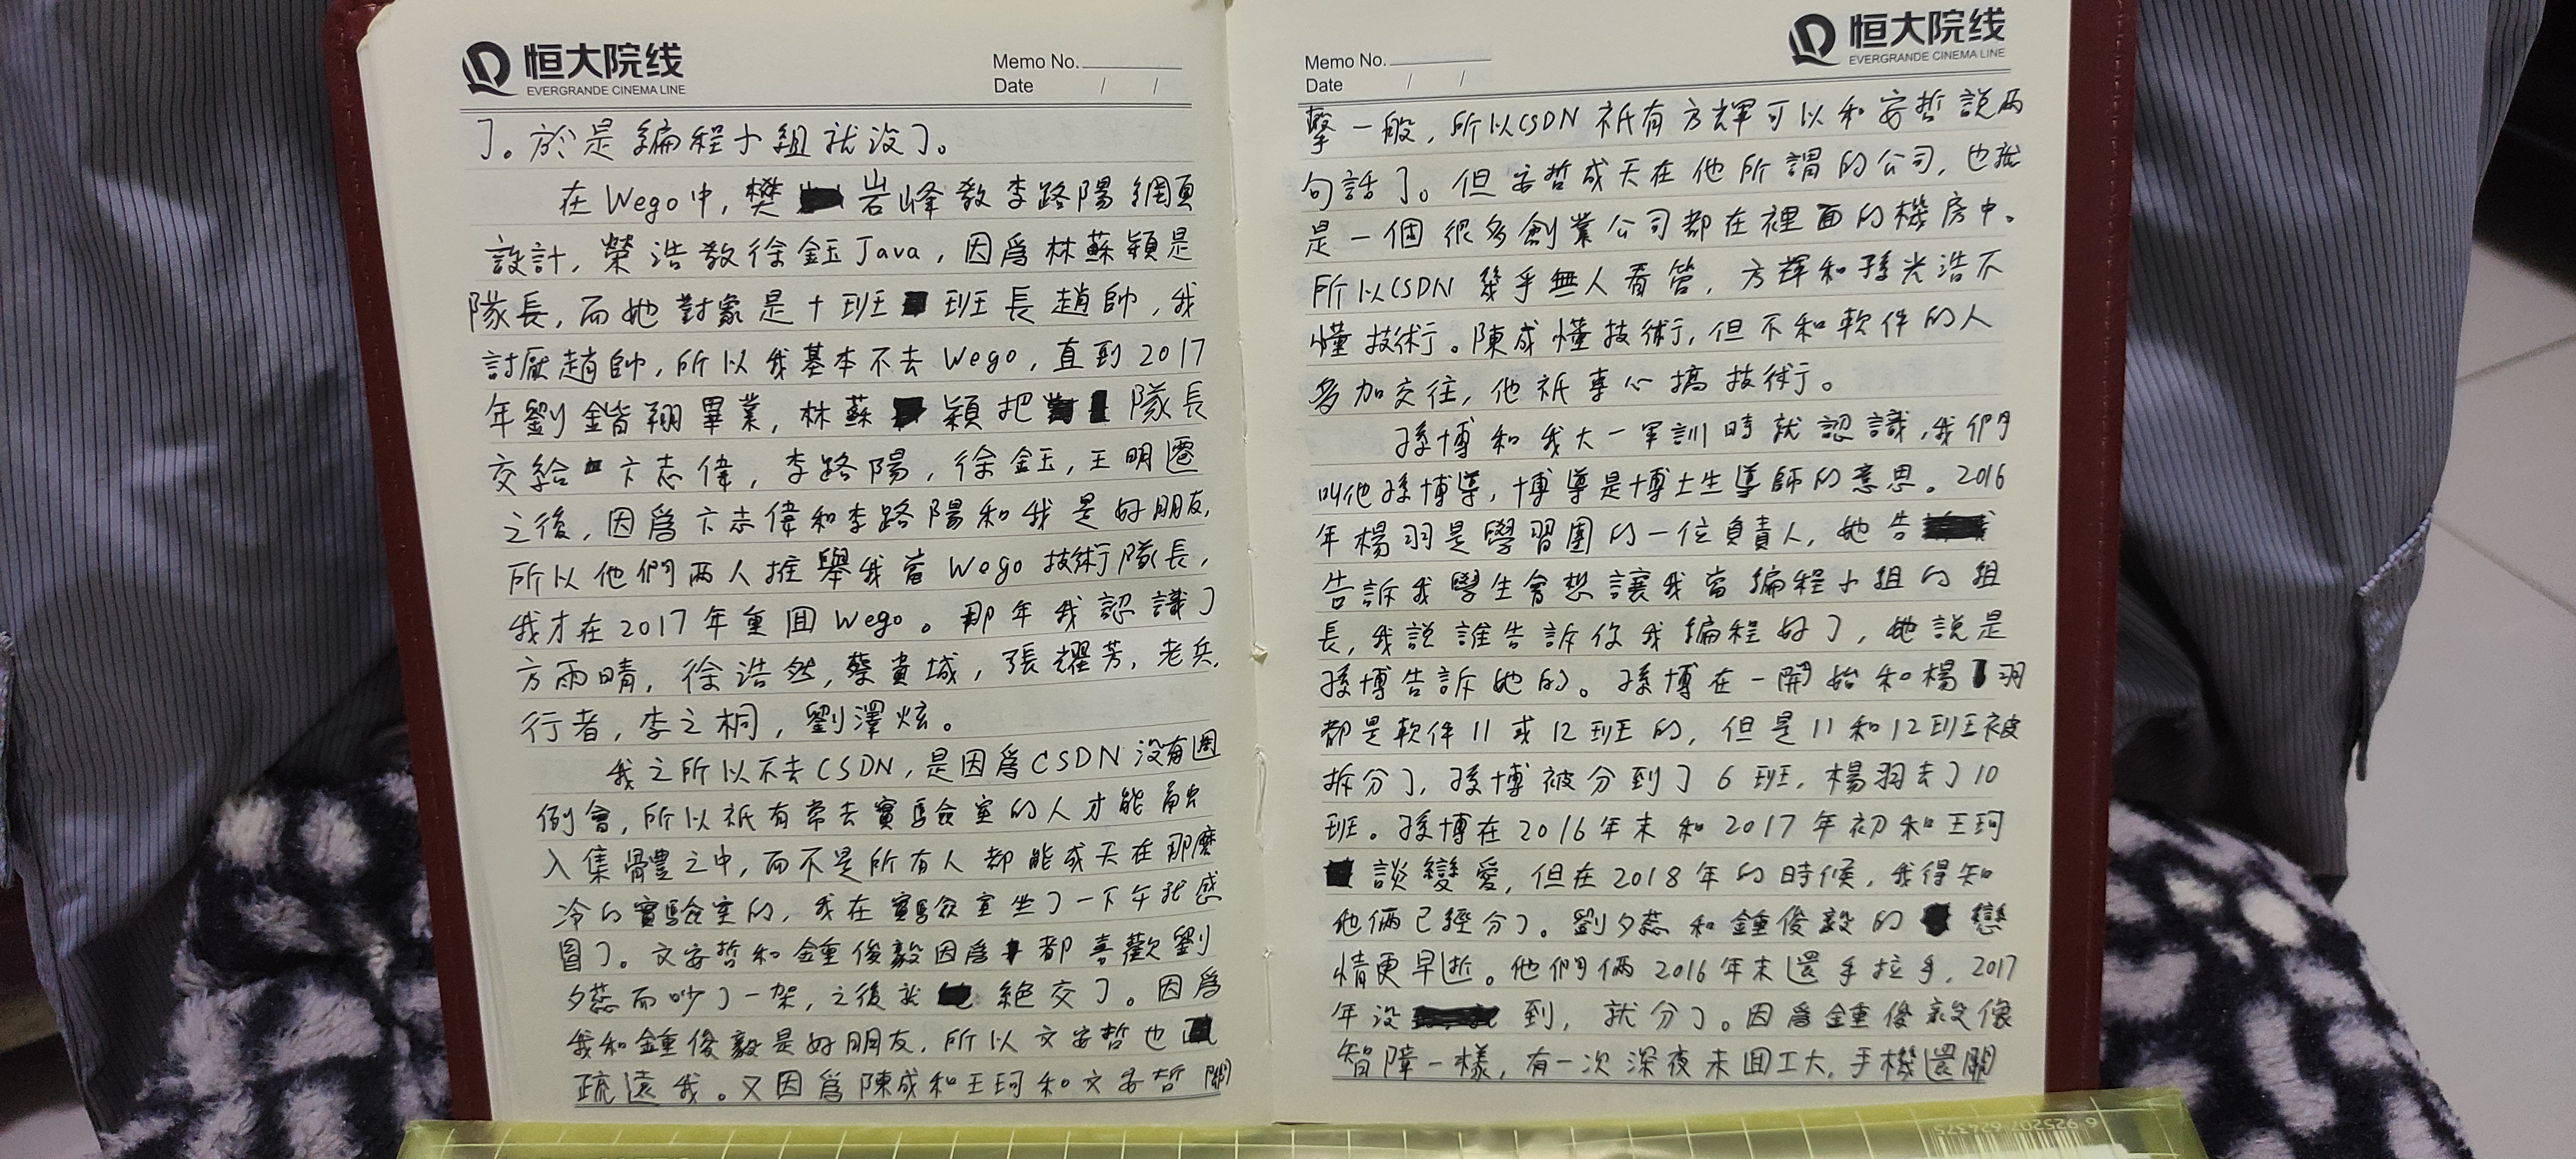 恒大院线
EVERGRANDE CINEMA LINE
Memo No.
Date / /
了。於是編程小組就没了。
在Wego中，樊岩峰教李路陽網頁
設計，榮浩教徐鈺Java，因爲林蘇穎是
隊長，而她對象是十班班長趙帥，我
討厭趙帥，所以我基本不去Wego，直到2017
年劉鍇翔畢業，林蘇穎把隊長
交給卞志偉，李路陽，徐鈺，王明遷
之後，因爲卞志偉和李路陽和我是好朋友，
所以他們两人推舉我當Wego技術隊長，
我才在2017年重回Wego。那年我認識了
方雨晴，徐浩然，蔡貴城，張耀芳，老兵，
行者，李之桐，劉澤炫。
我之所以不去CSDN，是因爲CSDN没有
例會，所以祇有常去實驗室的人才能融
入集體之中，而不是所有人都能成天在那麽
冷的實驗室的，我在實驗室坐了一下午就感
冒了。文安哲和鍾俊毅因爲都喜歡劉
夕蕊而吵了一架，之後就絕交了。因爲
我和鍾俊毅是好朋友，所以文安哲也
疏遠我。又因爲陳成和王珂和文安哲鬧
恒大院线
EVERGRANDE CINEMA LINE
Memo No.
Date / /
掰一般，所以CSDN祇有方輝可以和安哲說两
句話了。但安哲成天在他所謂的公司，也就
是一個很多創業公司都在裡面的機房中。
所以CSDN幾乎無人看管，方輝和孫光浩不
懂技術。陳成懂技術，但不和軟件的人
多加交往，他祇專心搞技術。
孫博和我大一軍訓時就認識，我們
叫他孫博導，博導是博士生導師的意思。2016
年楊羽是學習團的一位負責人，她告
告訴我學生會想讓我當編程小組的組
長，我說誰告訴你我編程好了，她說是
孫博告訴她的。孫博在一開始和楊羽
都是軟件11或12班的，但是11和12班被
拆分了，孫博被分到了6班，楊羽去了10
班。孫博在2016年末和2017年初和王珂
談變愛，但在2018年的時候，我得知
他倆已經分了。劉夕蕊和鍾俊毅的戀
情更早逝。他們倆2016年末還手拉手，2017
年没到，就分了。因爲鍾俊毅像
智障一樣，有一次深夜未回工大，手機還關